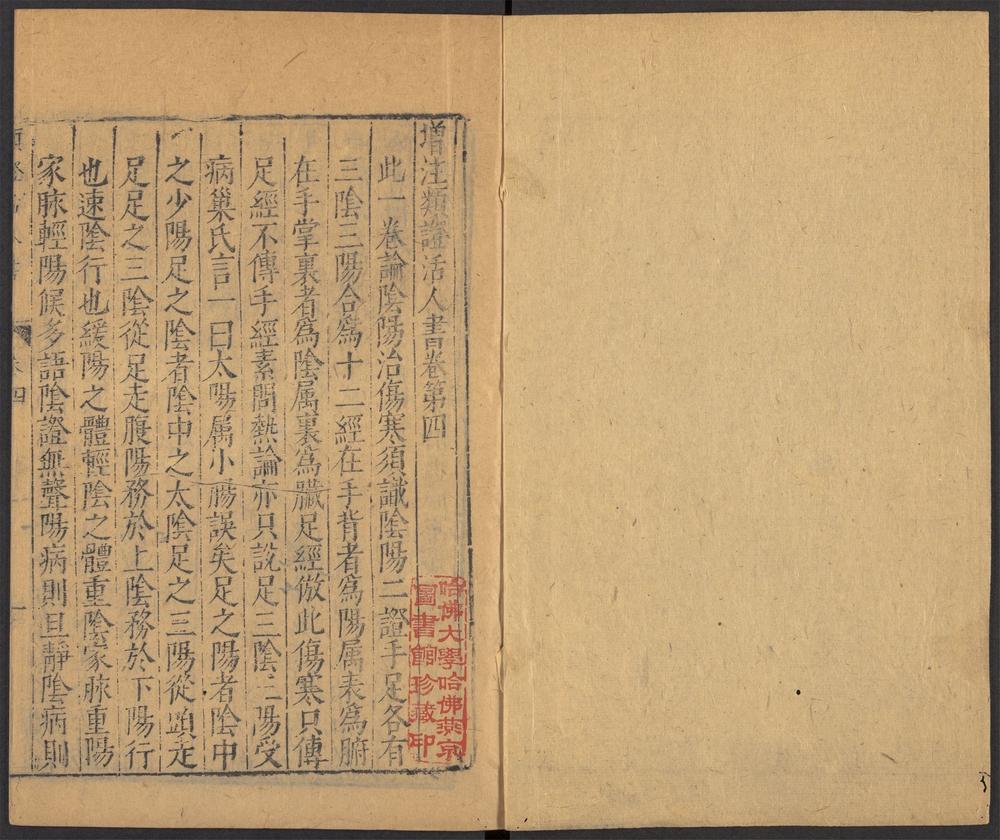 增注類證活人書卷第四
此一卷論陰陽治傷寒須識陰陽二證手足各有
三陰三陽合為十二經在手背者為陽属表為腑
在手掌裏者為陰属裏為臟足經倣此傷寒只傳
足經不傳手經素問熱論亦只說足三陰三陽受
病巢氏言一曰太陽属小腸誤矣足之陽者陰中
之少陽足之陰者陰中之太陰足之三陽從頭走
足足之三陰從足走腹陽務於上陰務於下陽行
也速陰行也緩陽之體輕陰之體重陰家脉重陽
家脉輕陽候多語陰證無聲陽病則旦靜陰病則
卷四
一
哈佛大學哈佛燕京
圖書館珍藏印